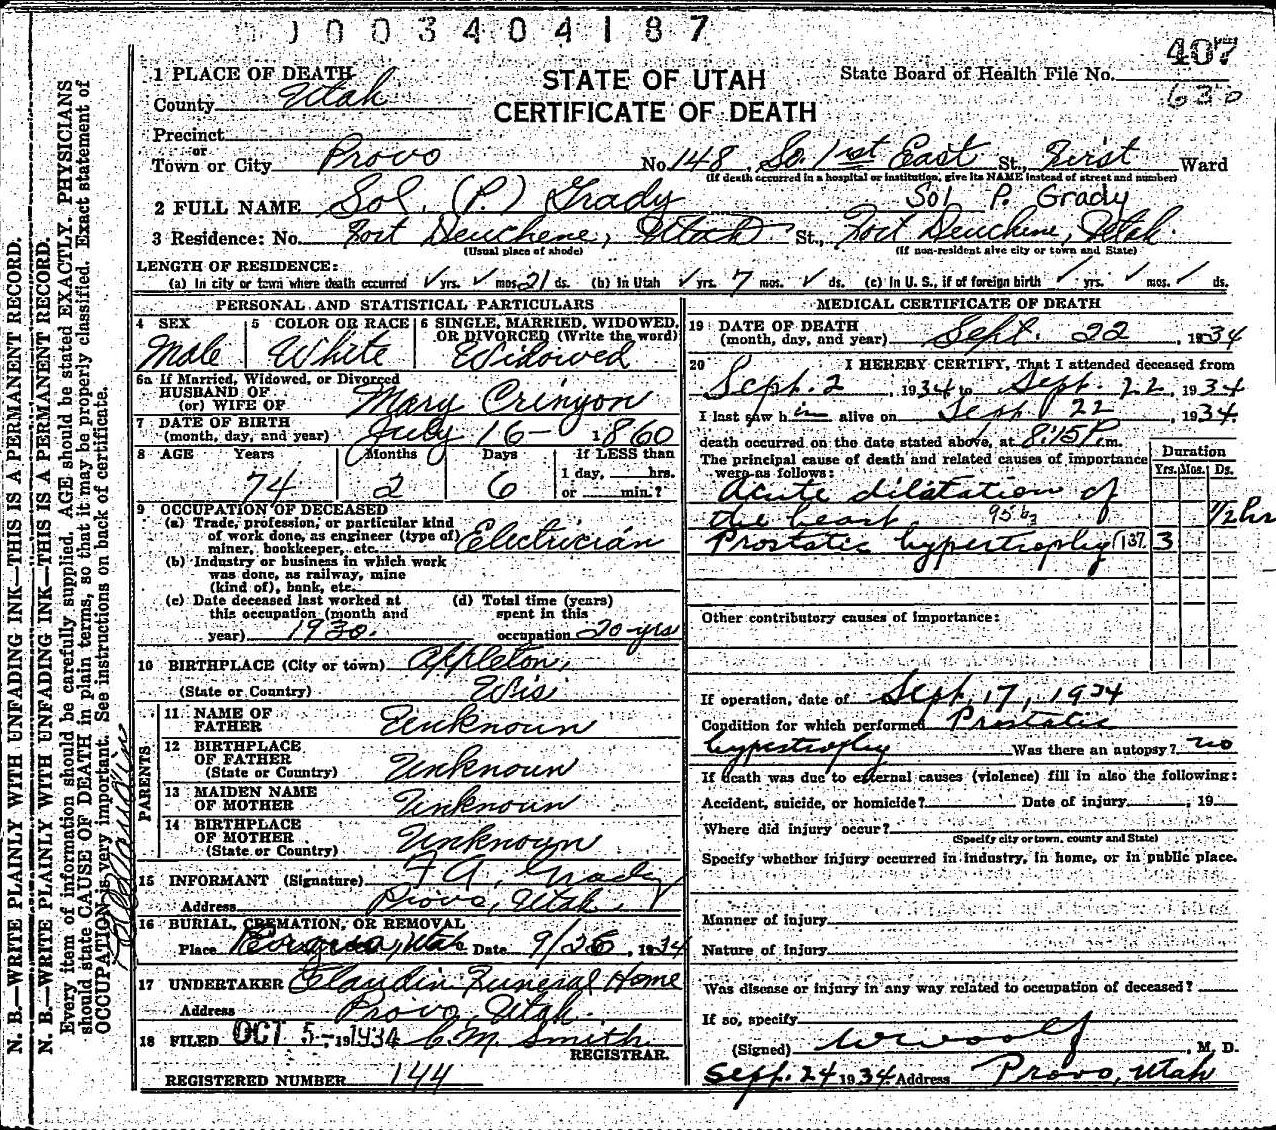 1003404187
407
1 PLACE OF DEATH
STATE OF UTAH
State Board of Health File No.
County Utah
CERTIFICATE OF DEATH
630
Precinct
or
Town or City Provo No. 148 So. 1st East St., First Ward
(If death occurred in a hospital or institution, give its NAME instead of street and number)
2 FULL NAME Sol. (P.) Grady Sol P. Grady
3 Residence: No. Fort Deuchene, Utah St., Fort Deuchene, Utah.
(Usual place of abode) (If non-resident give city or town and State)
LENGTH OF RESIDENCE:
(a) In city or town where death occurred ✓ yrs. ✓ mos. 21 ds. (b) In Utah ✓ yrs. 7 mos. ✓ ds. (c) In U. S., if of foreign birth yrs. mos. ds.
PERSONAL AND STATISTICAL PARTICULARS
4 SEX
Male
5 COLOR OR RACE
White
6 SINGLE, MARRIED, WIDOWED,
OR DIVORCED (Write the word)
Widowed
6a If Married, Widowed, or Divorced
HUSBAND OF
(or) WIFE OF Mary Crinyon
7 DATE OF BIRTH
(month, day, and year) July 16 1860
8 AGE Years Months Days If LESS than
1 day, hrs.
74 2 6 or min.?
9 OCCUPATION OF DECEASED
(a) Trade, profession, or particular kind
of work done, as engineer (type of)
miner, bookkeeper, etc. Electrician
(b) Industry or business in which work
was done, as railway, mine
(kind of), bank, etc.
(c) Date deceased last worked at
this occupation (month and
year) 1930.
(d) Total time (years)
spent in this
occupation 20 yrs
10 BIRTHPLACE (City or town) Appleton,
(State or Country) Wis
PARENTS
11 NAME OF
FATHER Unknoun
12 BIRTHPLACE
OF FATHER
(State or Country) Unknoun
13 MAIDEN NAME
OF MOTHER Unknoun
14 BIRTHPLACE
OF MOTHER
(State or Country) Unknoun
15 INFORMANT (Signature) F A. Grady
Address Provo, Utah
16 BURIAL, CREMATION, OR REMOVAL
Place Utah Date 9/26, 1934
17 UNDERTAKER Claudin Funeral Home
Address Provo, Utah.
18 FILED OCT 5-1934 C. M. Smith
REGISTRAR.
REGISTERED NUMBER 144
MEDICAL CERTIFICATE OF DEATH
19 DATE OF DEATH
(month, day, and year) Sept. 22, 1934
20 I HEREBY CERTIFY, That I attended deceased from
Sept. 2, 1934 to Sept. 22, 1934
I last saw him alive on Sept 22, 1934.
death occurred on the date stated above, at 8:15 P.m.
The principal cause of death and related causes of importance
were as follows:
Duration
Yrs. Mos. Ds.
Acute dilatation of
the heart 1/2 hr
Prostatic hypertrophy 137 3
Other contributory causes of importance:
If operation, date of Sept. 17, 1934
Condition for which performed Prostatic
hypertrophy Was there an autopsy? no
If death was due to external causes (violence) fill in also the following:
Accident, suicide, or homicide? Date of injury , 19
Where did injury occur?
(Specify city or town, county and State)
Specify whether injury occurred in industry, in home, or in public place.
Manner of injury
Nature of injury
Was disease or injury in any way related to occupation of deceased?
If so, specify
(Signed) W Woolf, M. D.
Sept. 24 1934 Address Provo, Utah
N. B.—WRITE PLAINLY WITH UNFADING INK—THIS IS A PERMANENT RECORD.
N. B.—WRITE PLAINLY WITH UNFADING INK—THIS IS A PERMANENT RECORD.
Every item of information should be carefully supplied. AGE should be stated EXACTLY. PHYSICIANS
should state CAUSE OF DEATH in plain terms, so that it may be properly classified. Exact statement of
OCCUPATION is very important. See instructions on back of certificate.